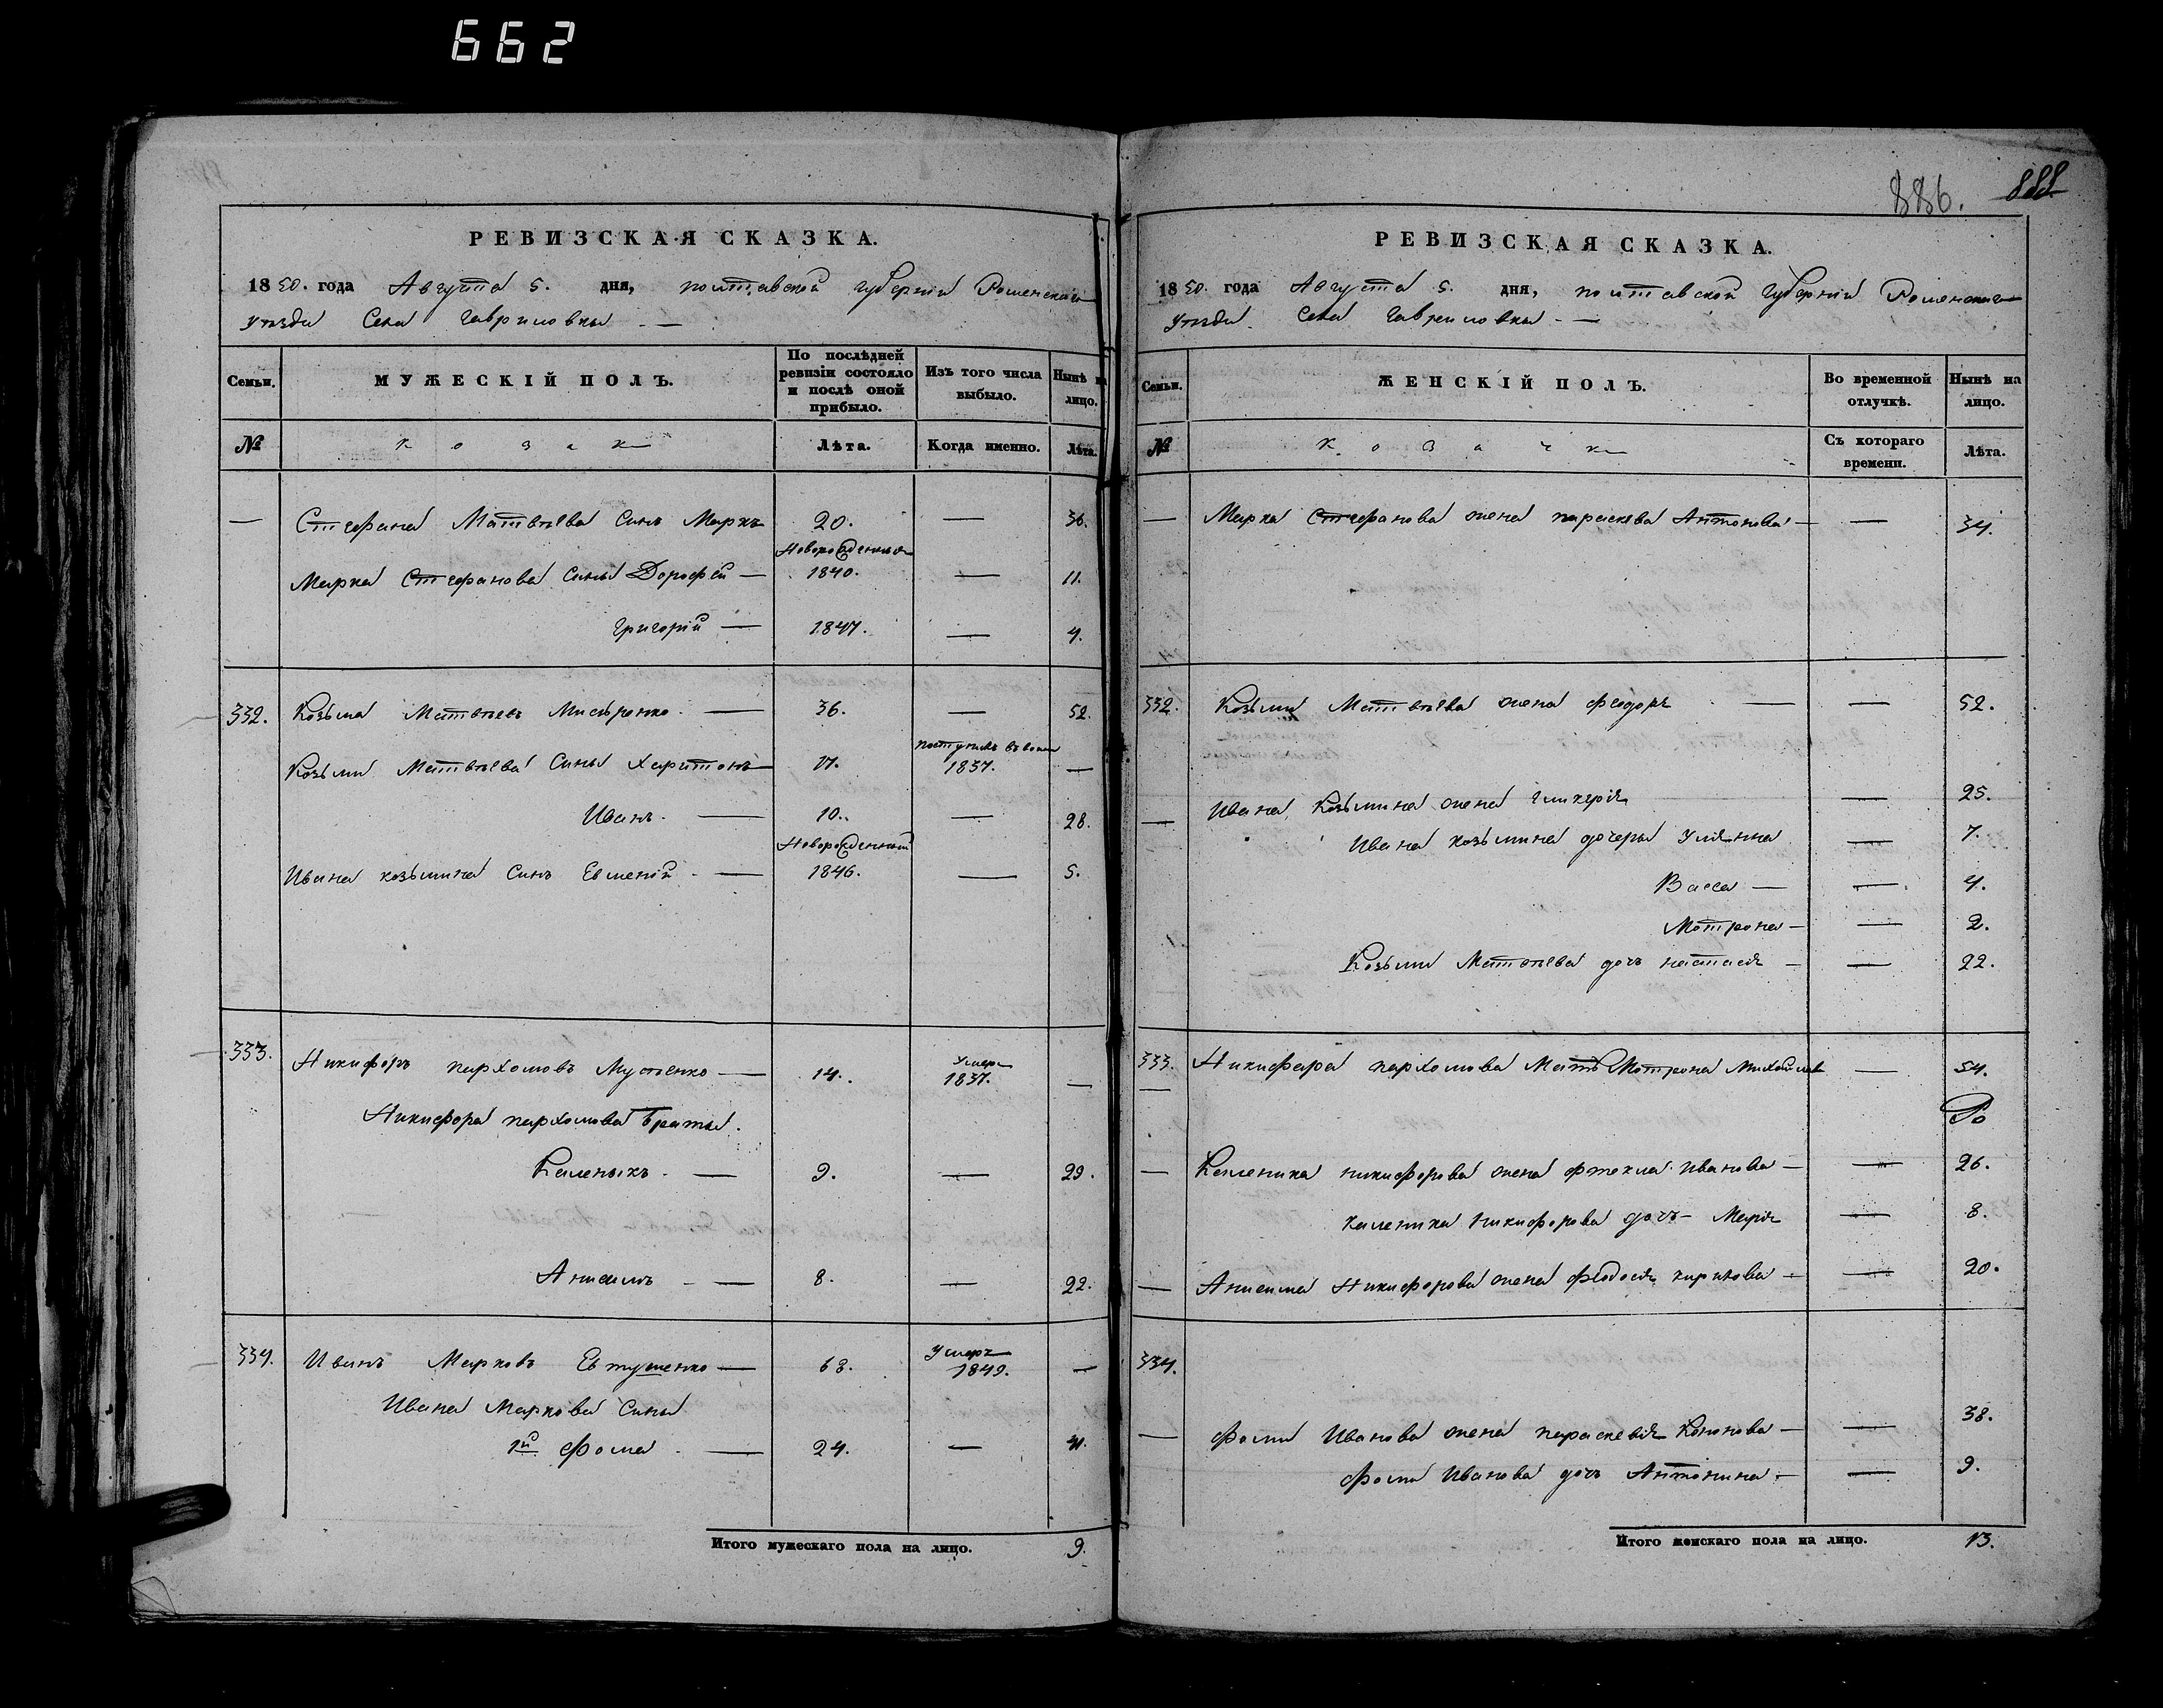 662
886. 888
РЕВИЗСКАЯ СКАЗКА.
1850. года Августа 5. дня, полтавской губерніи Роменскаго
уѣзда Села Гавриловки
Семьи. МУЖЕСКІЙ ПОЛЪ. По послѣдней ревизіи состояло и послѣ оной прибыло. Изъ того числа выбыло. Нынѣ на лицо.
№ козаки Лѣта. Когда именно. Лѣта.
— Стефана Матвѣева Синъ Маркъ 20. — 36.
Новорожденныя
Марка Стефанова Сины Дорофей — 1840. — 11.
Григорій — 1847. — 4.
332. Козьма Матвѣевъ Мисѣренко. — 36. — 52.
поступилъ въ
Козьми Матвѣева Сины Харитонъ 17. 1837. —
Иванъ. — 10. — 28.
Новорожденный
Ивана козьмина Синъ Евменій — 1846. — 5.
333. Никифоръ пархомовъ — 14. Умеръ 1837. —
Никифора пархомова браты.
Каленыкъ. — 9. — 29.
Анисимъ — 8. — 22.
334. Иванъ Марковъ Евтушенко — 63. Умеръ 1849. —
Ивана Маркова Сины
1й Фома — 24. — 41.
Итого мужескаго пола на лицо. 9.
РЕВИЗСКАЯ СКАЗКА.
1850. года Августа 5. дня, полтавской губерніи Роменскаго
уѣзда. Села Гавриловки —
Семьи. ЖЕНСКІЙ ПОЛЪ. Во временной отлучкѣ. Нынѣ на лицо.
№ козачки Съ котораго времени. Лѣта.
— Марка Стефанова жена параскева Антонова — — 34.
332. Козьми Матвѣева жена феодора — — 52.
— Ивана Козьмина жена гликерія — 25.
Ивана козьмина дочеры Уліянна — 7.
Васса — — 4.
Мотрона — — 2.
Козьми Матвѣева дочь настасія — — 22.
333. Никифора пархомова Мать Мотрона Михайлова — 54.
— Каленика никифорова жена фтекла Иванова — — 26.
каленика никифорова дочь — Марія — 8.
— Анисима Никифорова жена феодосія кирикова — — 20.
334.
— Фоми Иванова жена параскевія Кононова — — 38.
Фоми Иванова дочь Антонина — — 9.
Итого женскаго пола на лицо. 13.